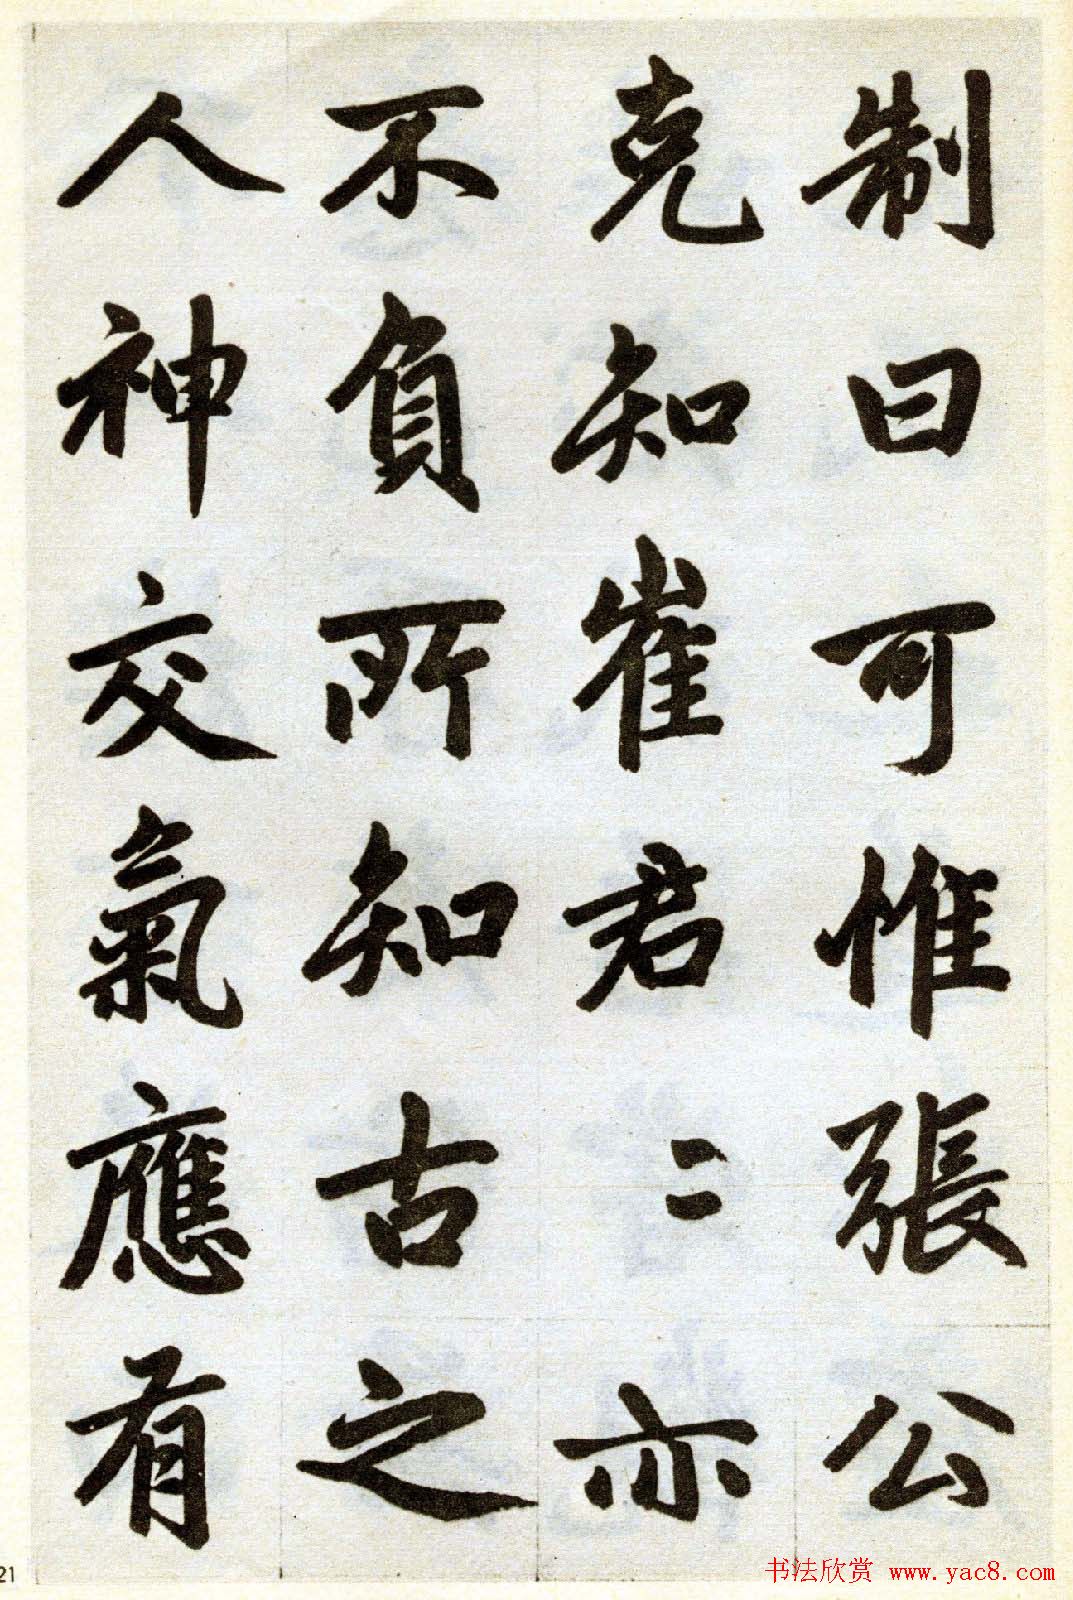 制曰可惟張公
克知崔君〻亦
不負所知古之
人神交氣應有
21
书法欣赏 www.yac8.com